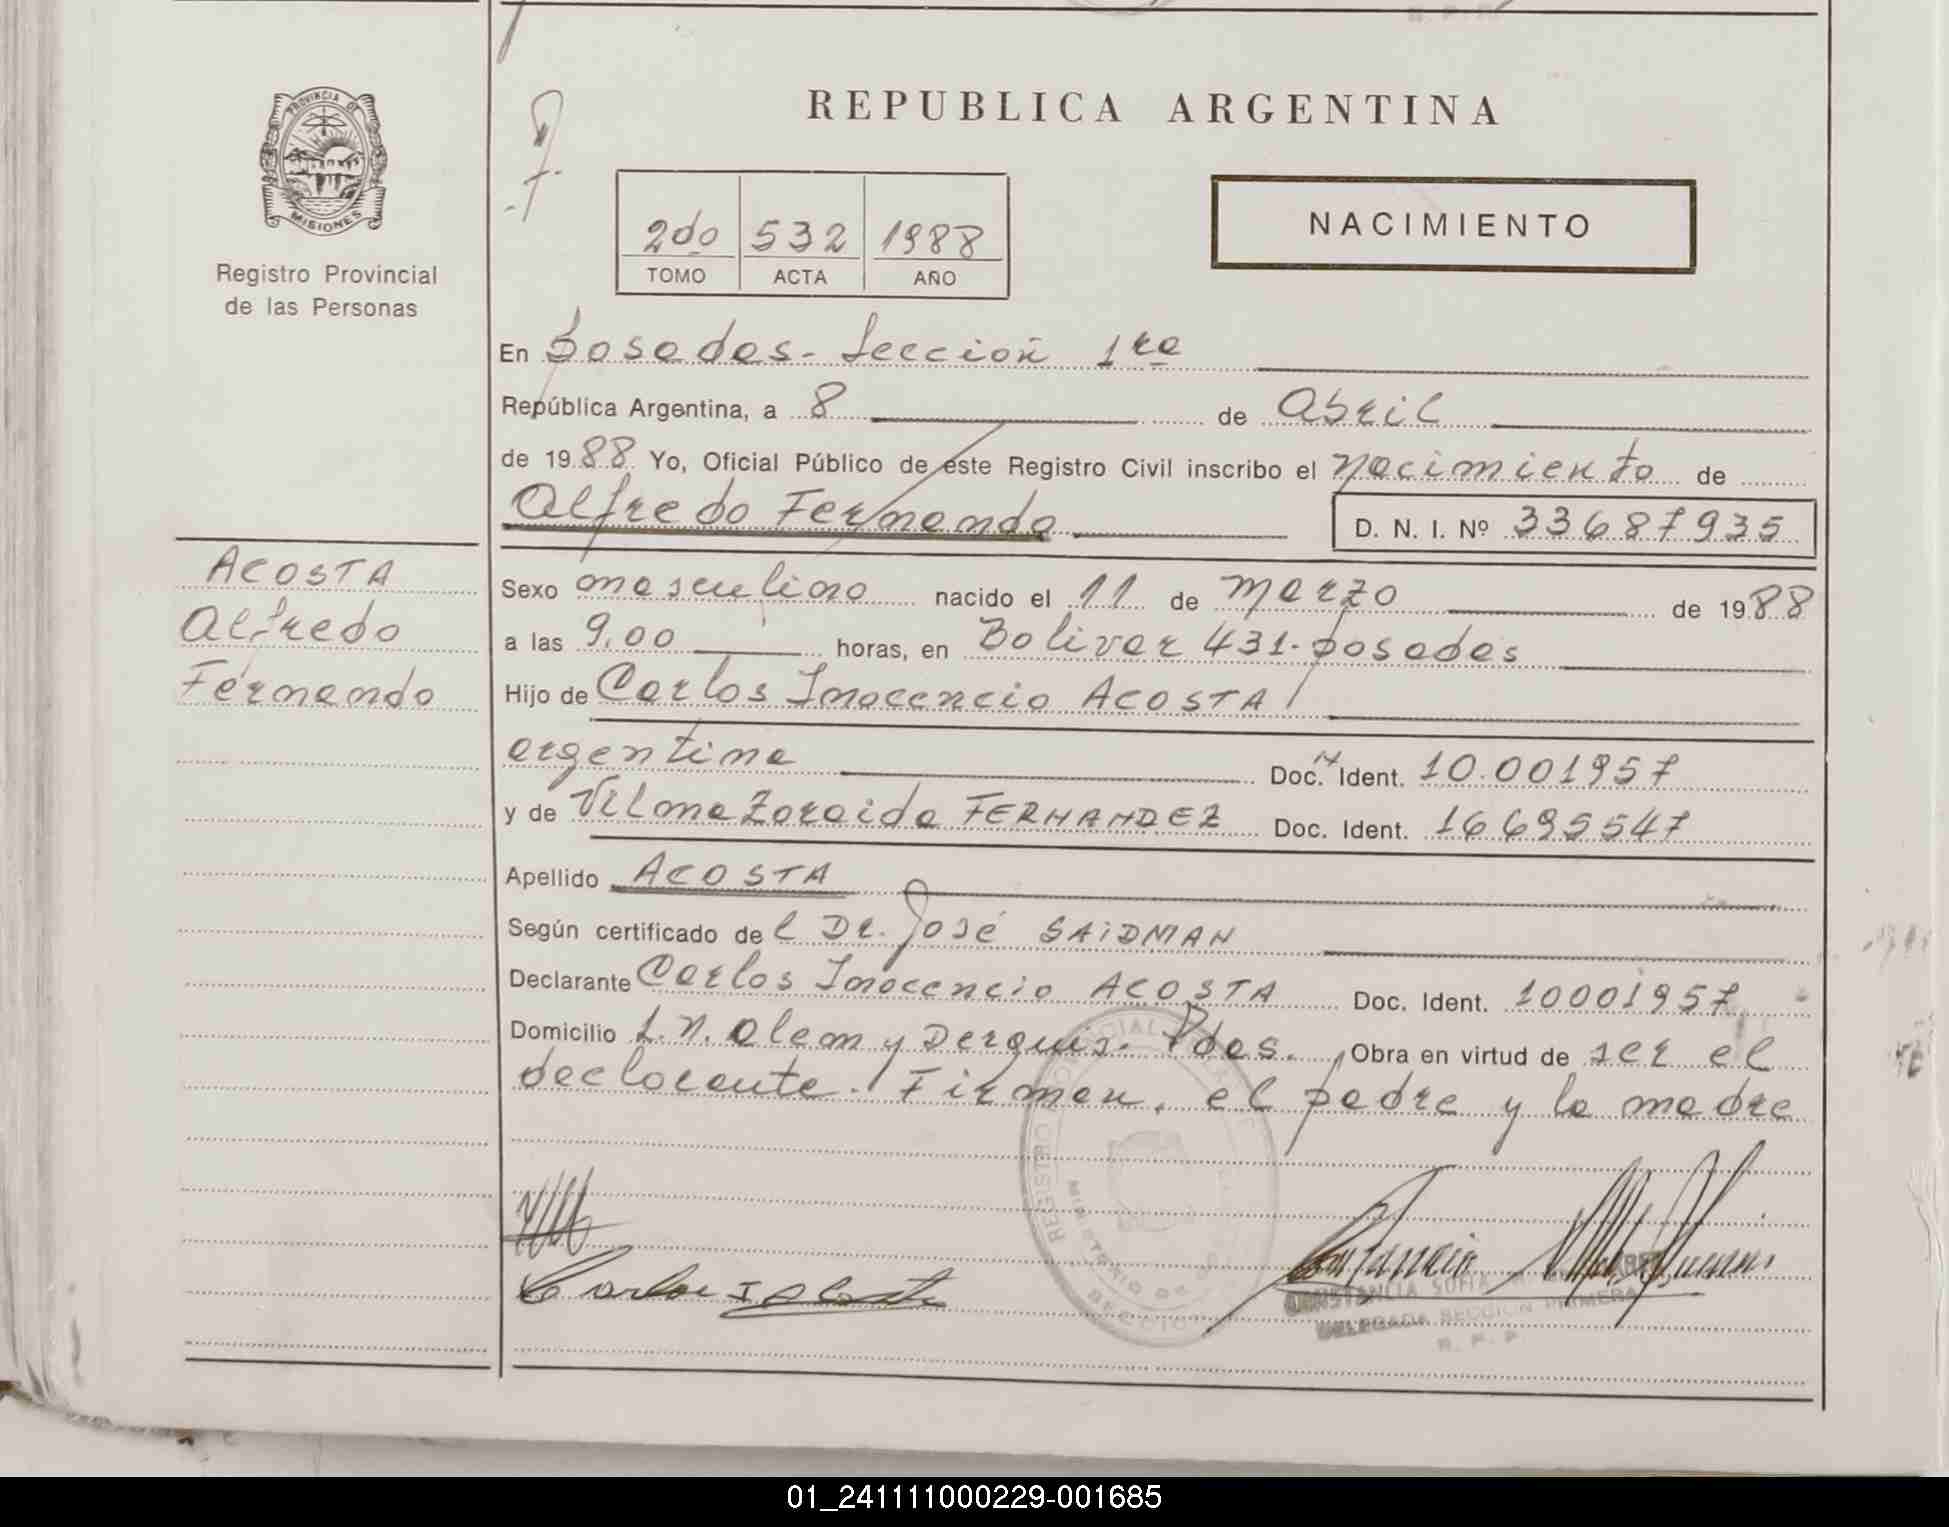 REPUBLICA ARGENTINA
PROVINCIA DE
MISIONES
Registro Provincial
de las Personas
2do 532 1988
TOMO ACTA AÑO
NACIMIENTO
En Posadas - Sección 1ra
República Argentina, a 8 de Abril
de 1988 Yo, Oficial Público de este Registro Civil inscribo el nacimiento de
Alfredo Fernando D. N. I. Nº 33687935
ACOSTA
Alfredo
Fernando
Sexo masculino nacido el 11 de Marzo de 1988
a las 9,00 horas, en Bolivar 431 - posadas
Hijo de Carlos Inocencio ACOSTA
argentina Doc. Ident. 10.001957
y de Vilma Zoraida FERNANDEZ Doc. Ident. 16695547
Apellido ACOSTA
Según certificado del Dr. José SAIDMAN
Declarante Carlos Inocencio ACOSTA Doc. Ident. 10001957
Domicilio L.N. Alem y Derquis. Pdas. Obra en virtud de ser el
declarante. Firman, el padre y la madre
Carlos I Acosta
CONSTANCIA SOFIA
DELEGADA SECCION PRIMERA
R. P. P.
01_241111000229-001685